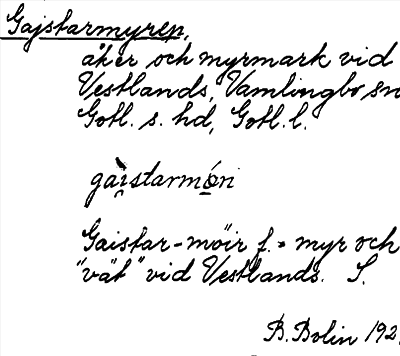 Gajstarmyren,
åker och myrmark vid
Vestlands, Vamlingbo sn
Gotl. s. hd, Gotl. l.
gaistarmöri
Gaistar-möir f. = myr och
"vät" vid Vestlands. S.
B. Bolin 192